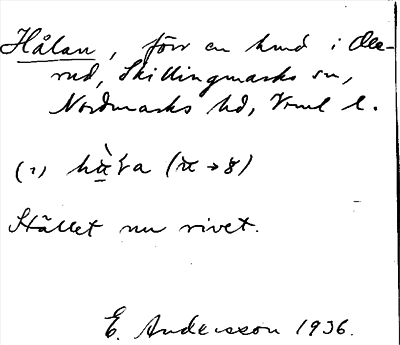 Hålan, förr en hmd i Ole-
rud, Skillingmarks sn,
Nordmarks hd, Vrml l.
Stället nu rivet.
E. Andersson 1936.